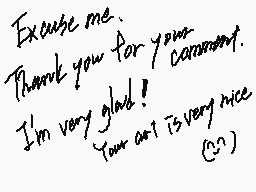 Excuse me.
Thank you for your comment.
I'm very glad!
Your art is very nice